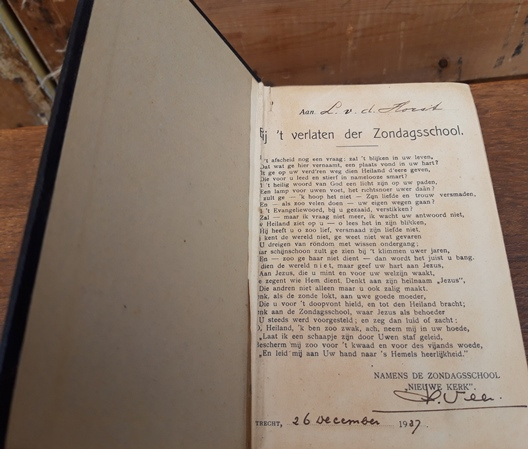 Aan L. v. d. Horst
Bij 't verlaten der Zondagsschool.
't afscheid nog een vraag; zal 't blijken in uw leven,
Dat wat ge hier vernaamt, een plaats vond in uw hart?
't ge op uw verd'ren weg dien Heiland d'eere geven,
Die voor u leed en stierf in namelooze smart?
't heilig woord van God een licht zijn op uw paden,
Een lamp voor uwen voet, het richtsnoer uwer daân?
zult ge — 'k hoop het niet — Zijn liefde en trouw versmaden,
En — als zoo velen doen — uw eigen wegen gaan?
't Evangeliewoord, bij u gezaaid, verstikken?
Zal — maar ik vraag niet meer, ik wacht uw antwoord niet,
Heiland ziet op u — o lees het in zijn blikken,
Hij heeft u zoo lief, versmaad zijn liefde niet.
kent de wereld niet, ge weet niet wat gevaren
U dreigen van rondom met wissen ondergang;
schijnschoon zult ge zien bij 't klimmen uwer jaren,
En — zoo ge haar niet dient — dan wordt het juist u bang.
dien de wereld niet, maar geef uw hart aan Jezus,
Aan Jezus, die u mint en voor uw welzijn waakt,
zegent wie Hem dient. Denkt aan zijn heilnaam „Jezus",
Die andren niet alleen maar u ook zalig maakt.
als de zonde lokt, aan uwe goede moeder,
Die u voor 't doopvont hield, en tot den Heiland bracht;
aan de Zondagsschool, waar Jezus als behoeder
U steeds werd voorgesteld; en zeg dan luid of zacht:
Heiland, 'k ben zoo zwak, ach, neem mij in uw hoede,
„Laat ik een schaapje zijn door Uwen staf geleid,
Bescherm mij zoo voor 't kwaad en voor des vijands woede,
„En leid mij aan Uw hand naar 's Hemels heerlijkheid."
NAMENS DE ZONDAGSSCHOOL
„NIEUWE KERK".
TRECHT, 26 December 1927